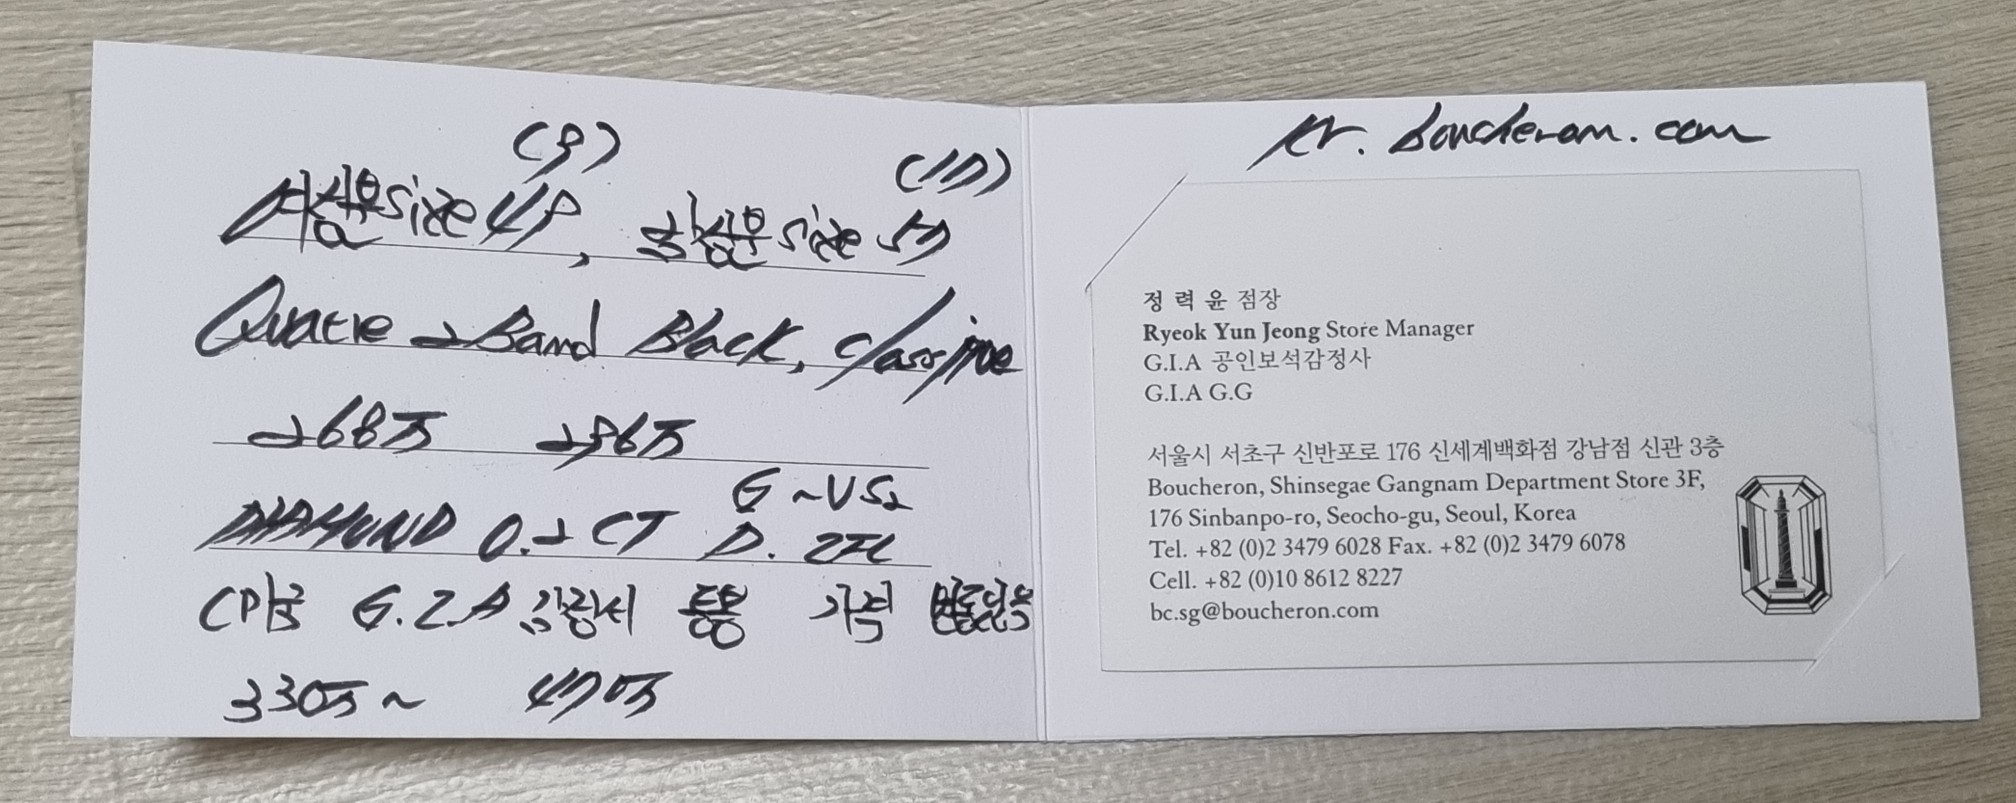 (9)
여성분 size 49,
(17)
남성분 size 57
Quatre → Band Black, classique
→ 268万 → 296万
G ~ VS2
DIAMOND 0.2 CT D.
G.I.A 감정서 동봉 가격
330万 ~ 470万
kr. boucheron. com
정 력 윤 점장
Ryeok Yun Jeong Store Manager
G.I.A 공인보석감정사
G.I.A G.G
서울시 서초구 신반포로 176 신세계백화점 강남점 신관 3층
Boucheron, Shinsegae Gangnam Department Store 3F,
176 Sinbanpo-ro, Seocho-gu, Seoul, Korea
Tel. +82 (0)2 3479 6028 Fax. +82 (0)2 3479 6078
Cell. +82 (0)10 8612 8227
bc.sg@boucheron.com